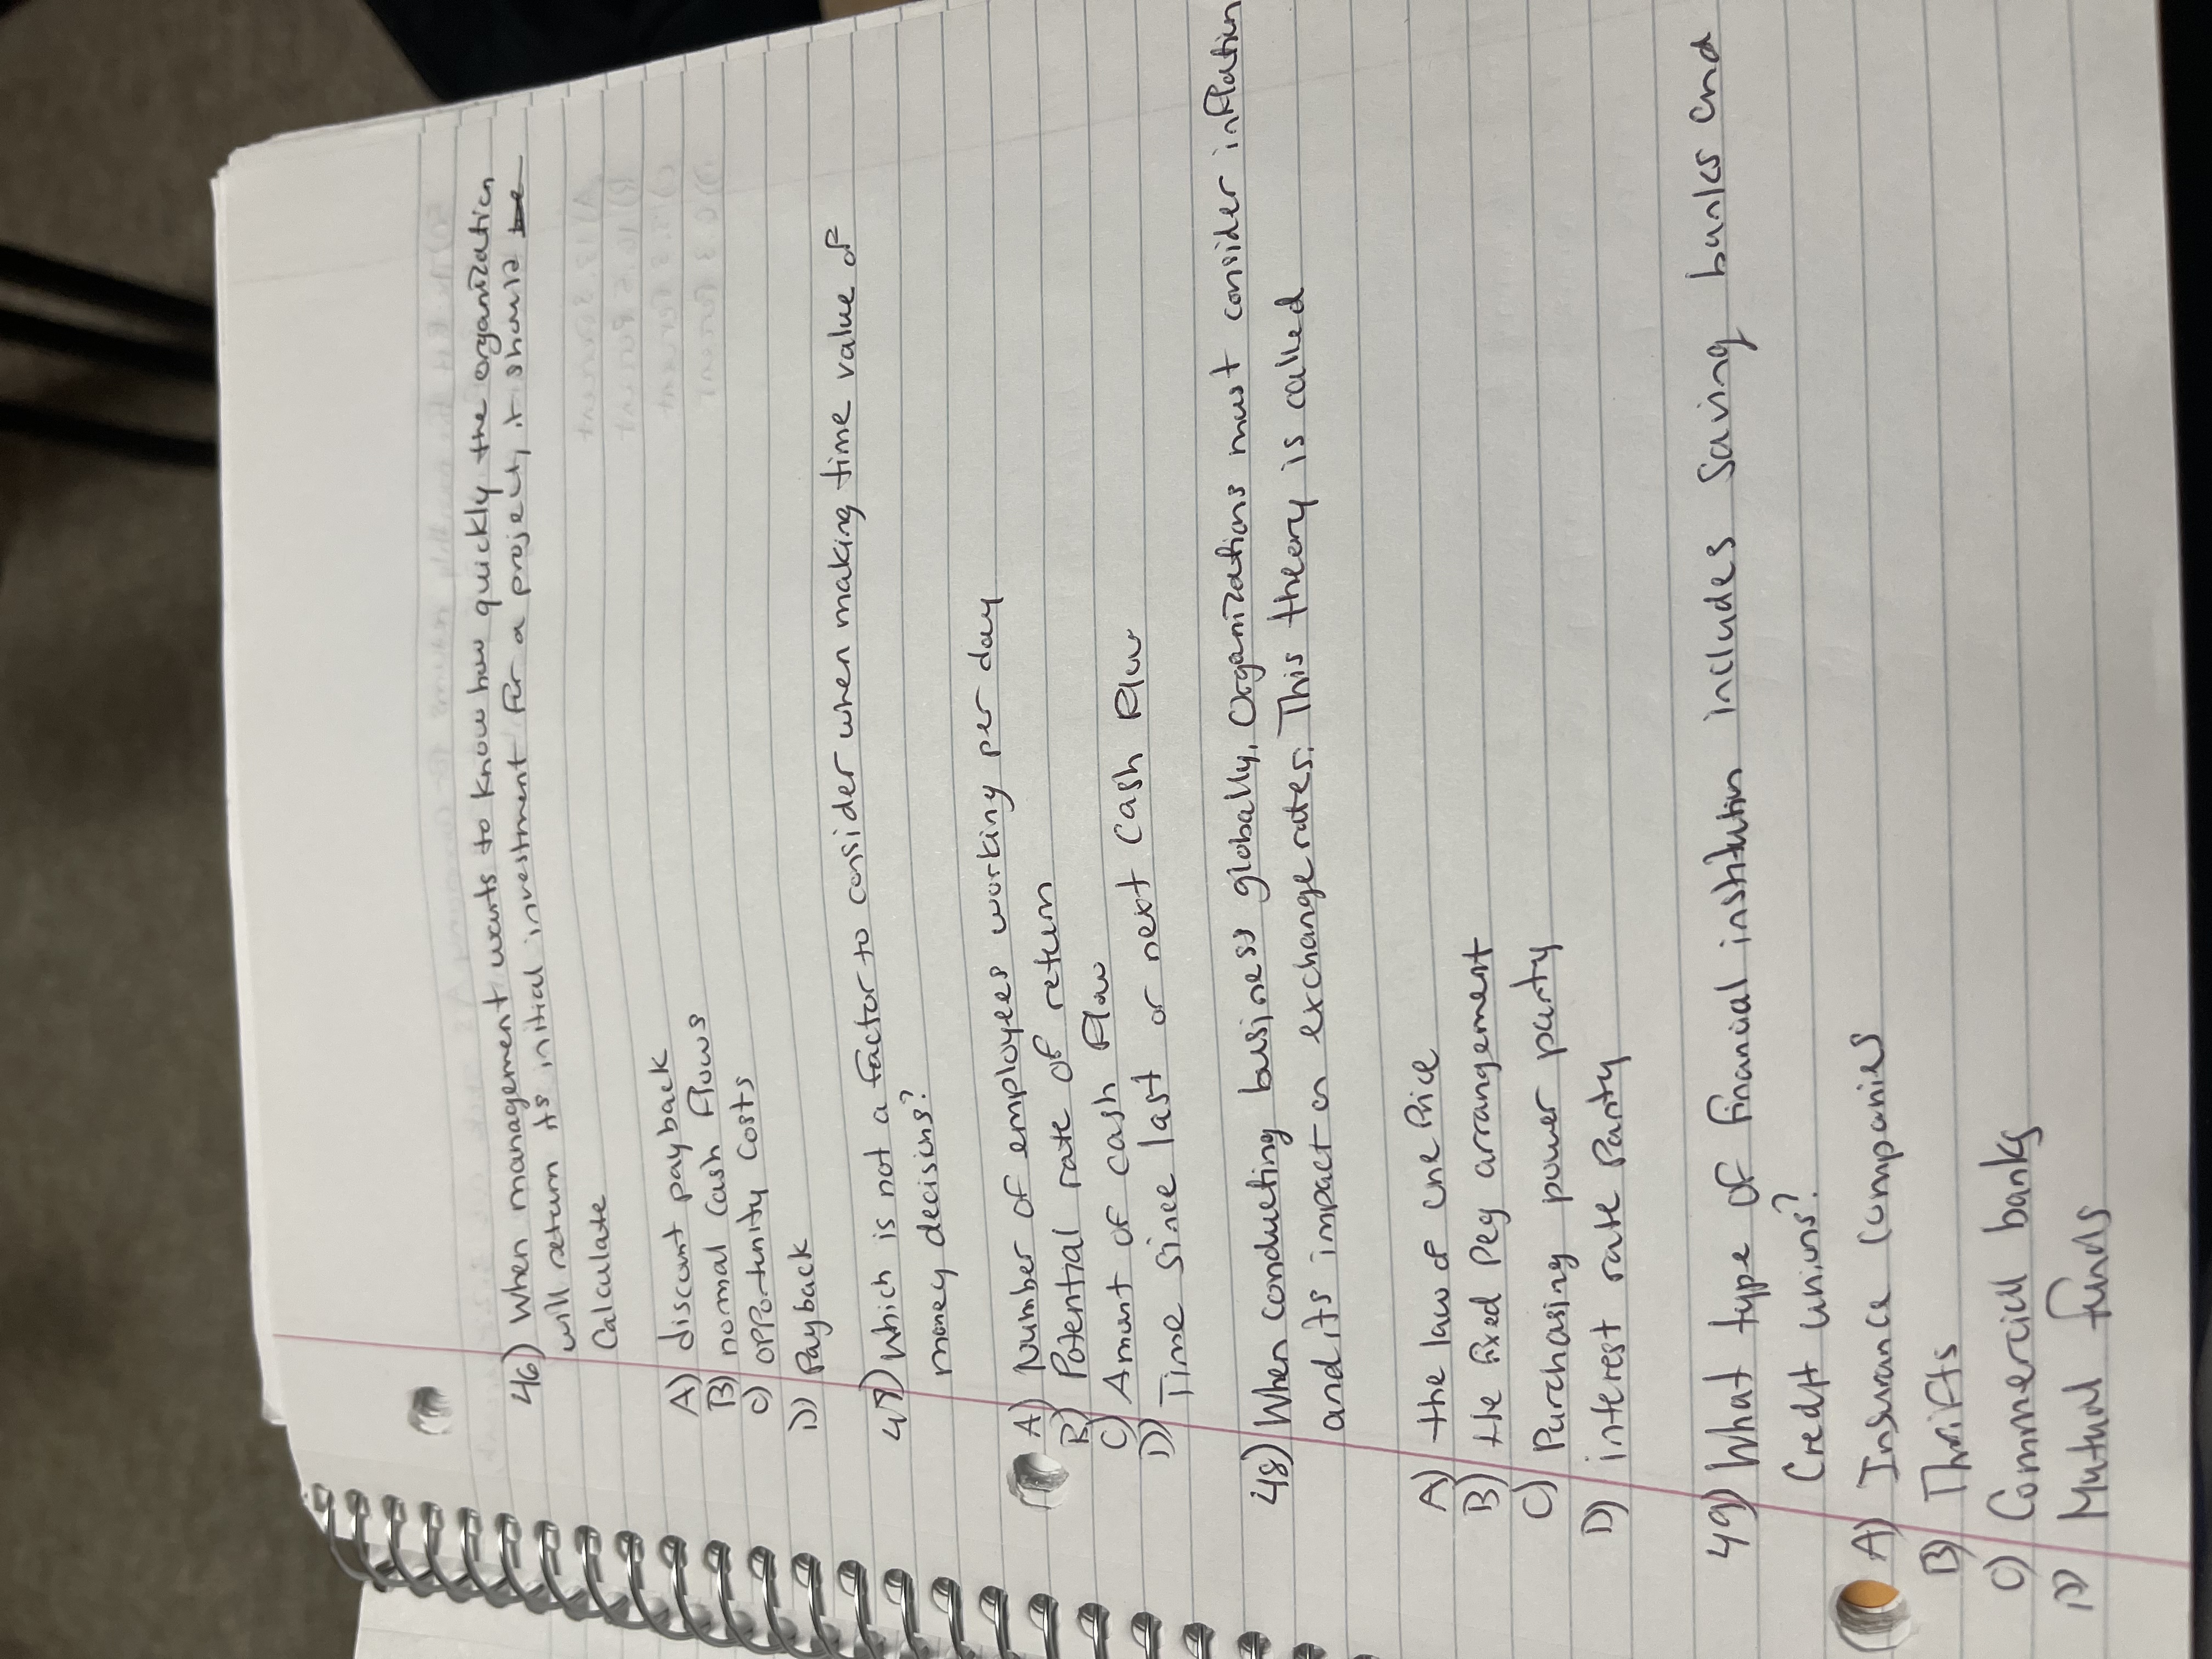 46) When management wants to know how quickly the organization
will return its initial investment for a project, it should be
Calculate
A) discount payback
B) normal cash flows
C) opportunity costs
D) Payback
47) Which is not a factor to consider when making time value of
money decisions?
A) Number of employees working per day
B) Potential rate of return
C) Amount of cash flow
D) Time since last or next cash flow
48) When conducting business globally, Organizations must consider inflation
and its impact on exchange rates. This theory is called
A) the law of one Price
B) the fixed Peg arrangement
C) Purchasing power parity
D) interest rate Parity
49) What type of financial institution includes Saving banks and
Credit unions?
A) Insurance Companies
B) Thrifts
C) Commercial banks
D) Mutual funds